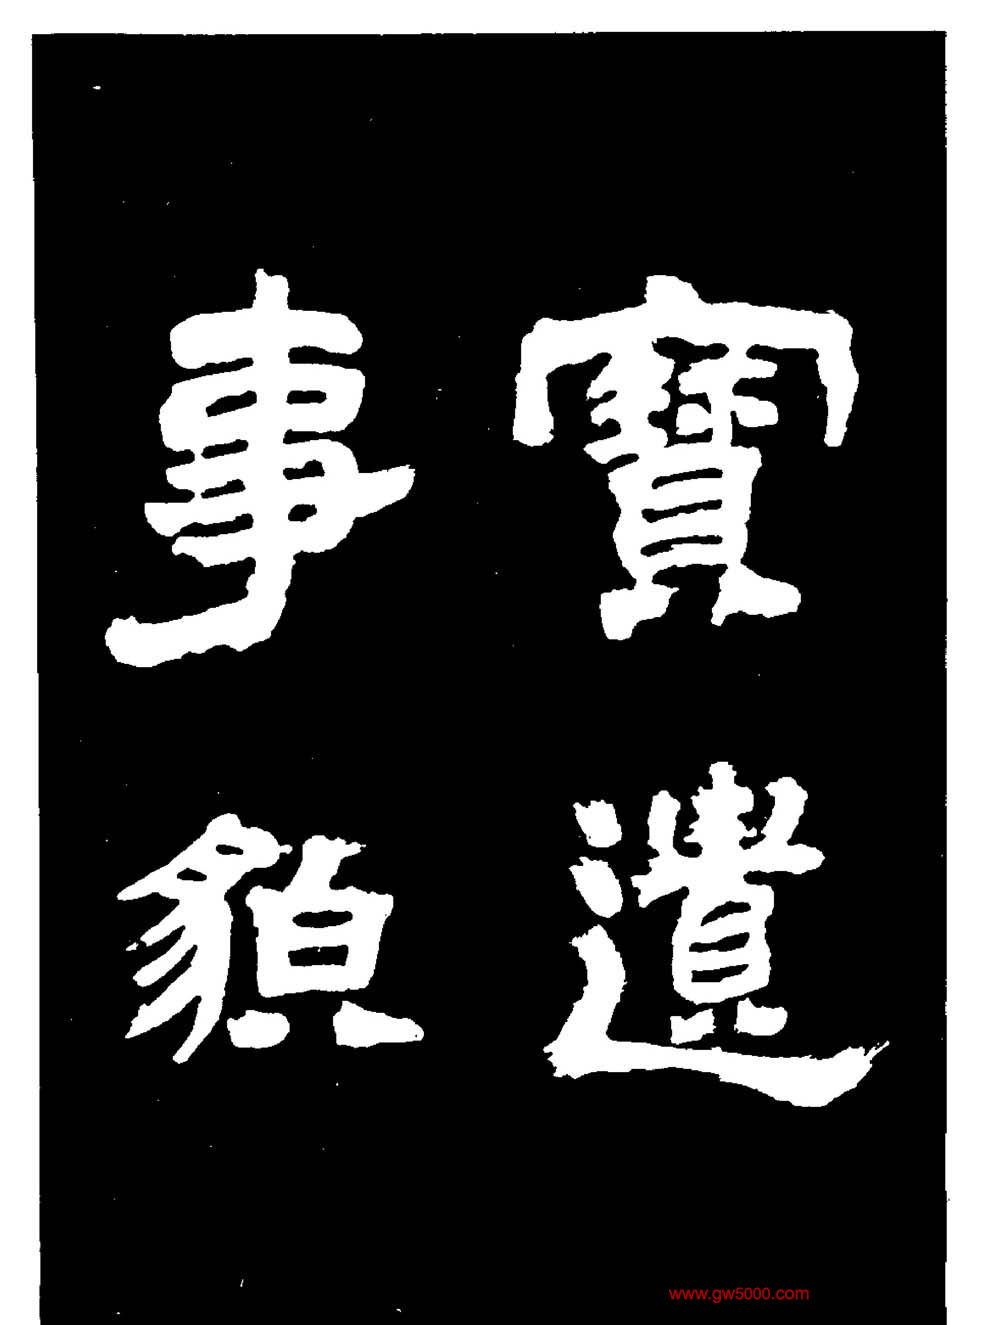 寶遺
事䫉
www.gw5000.com